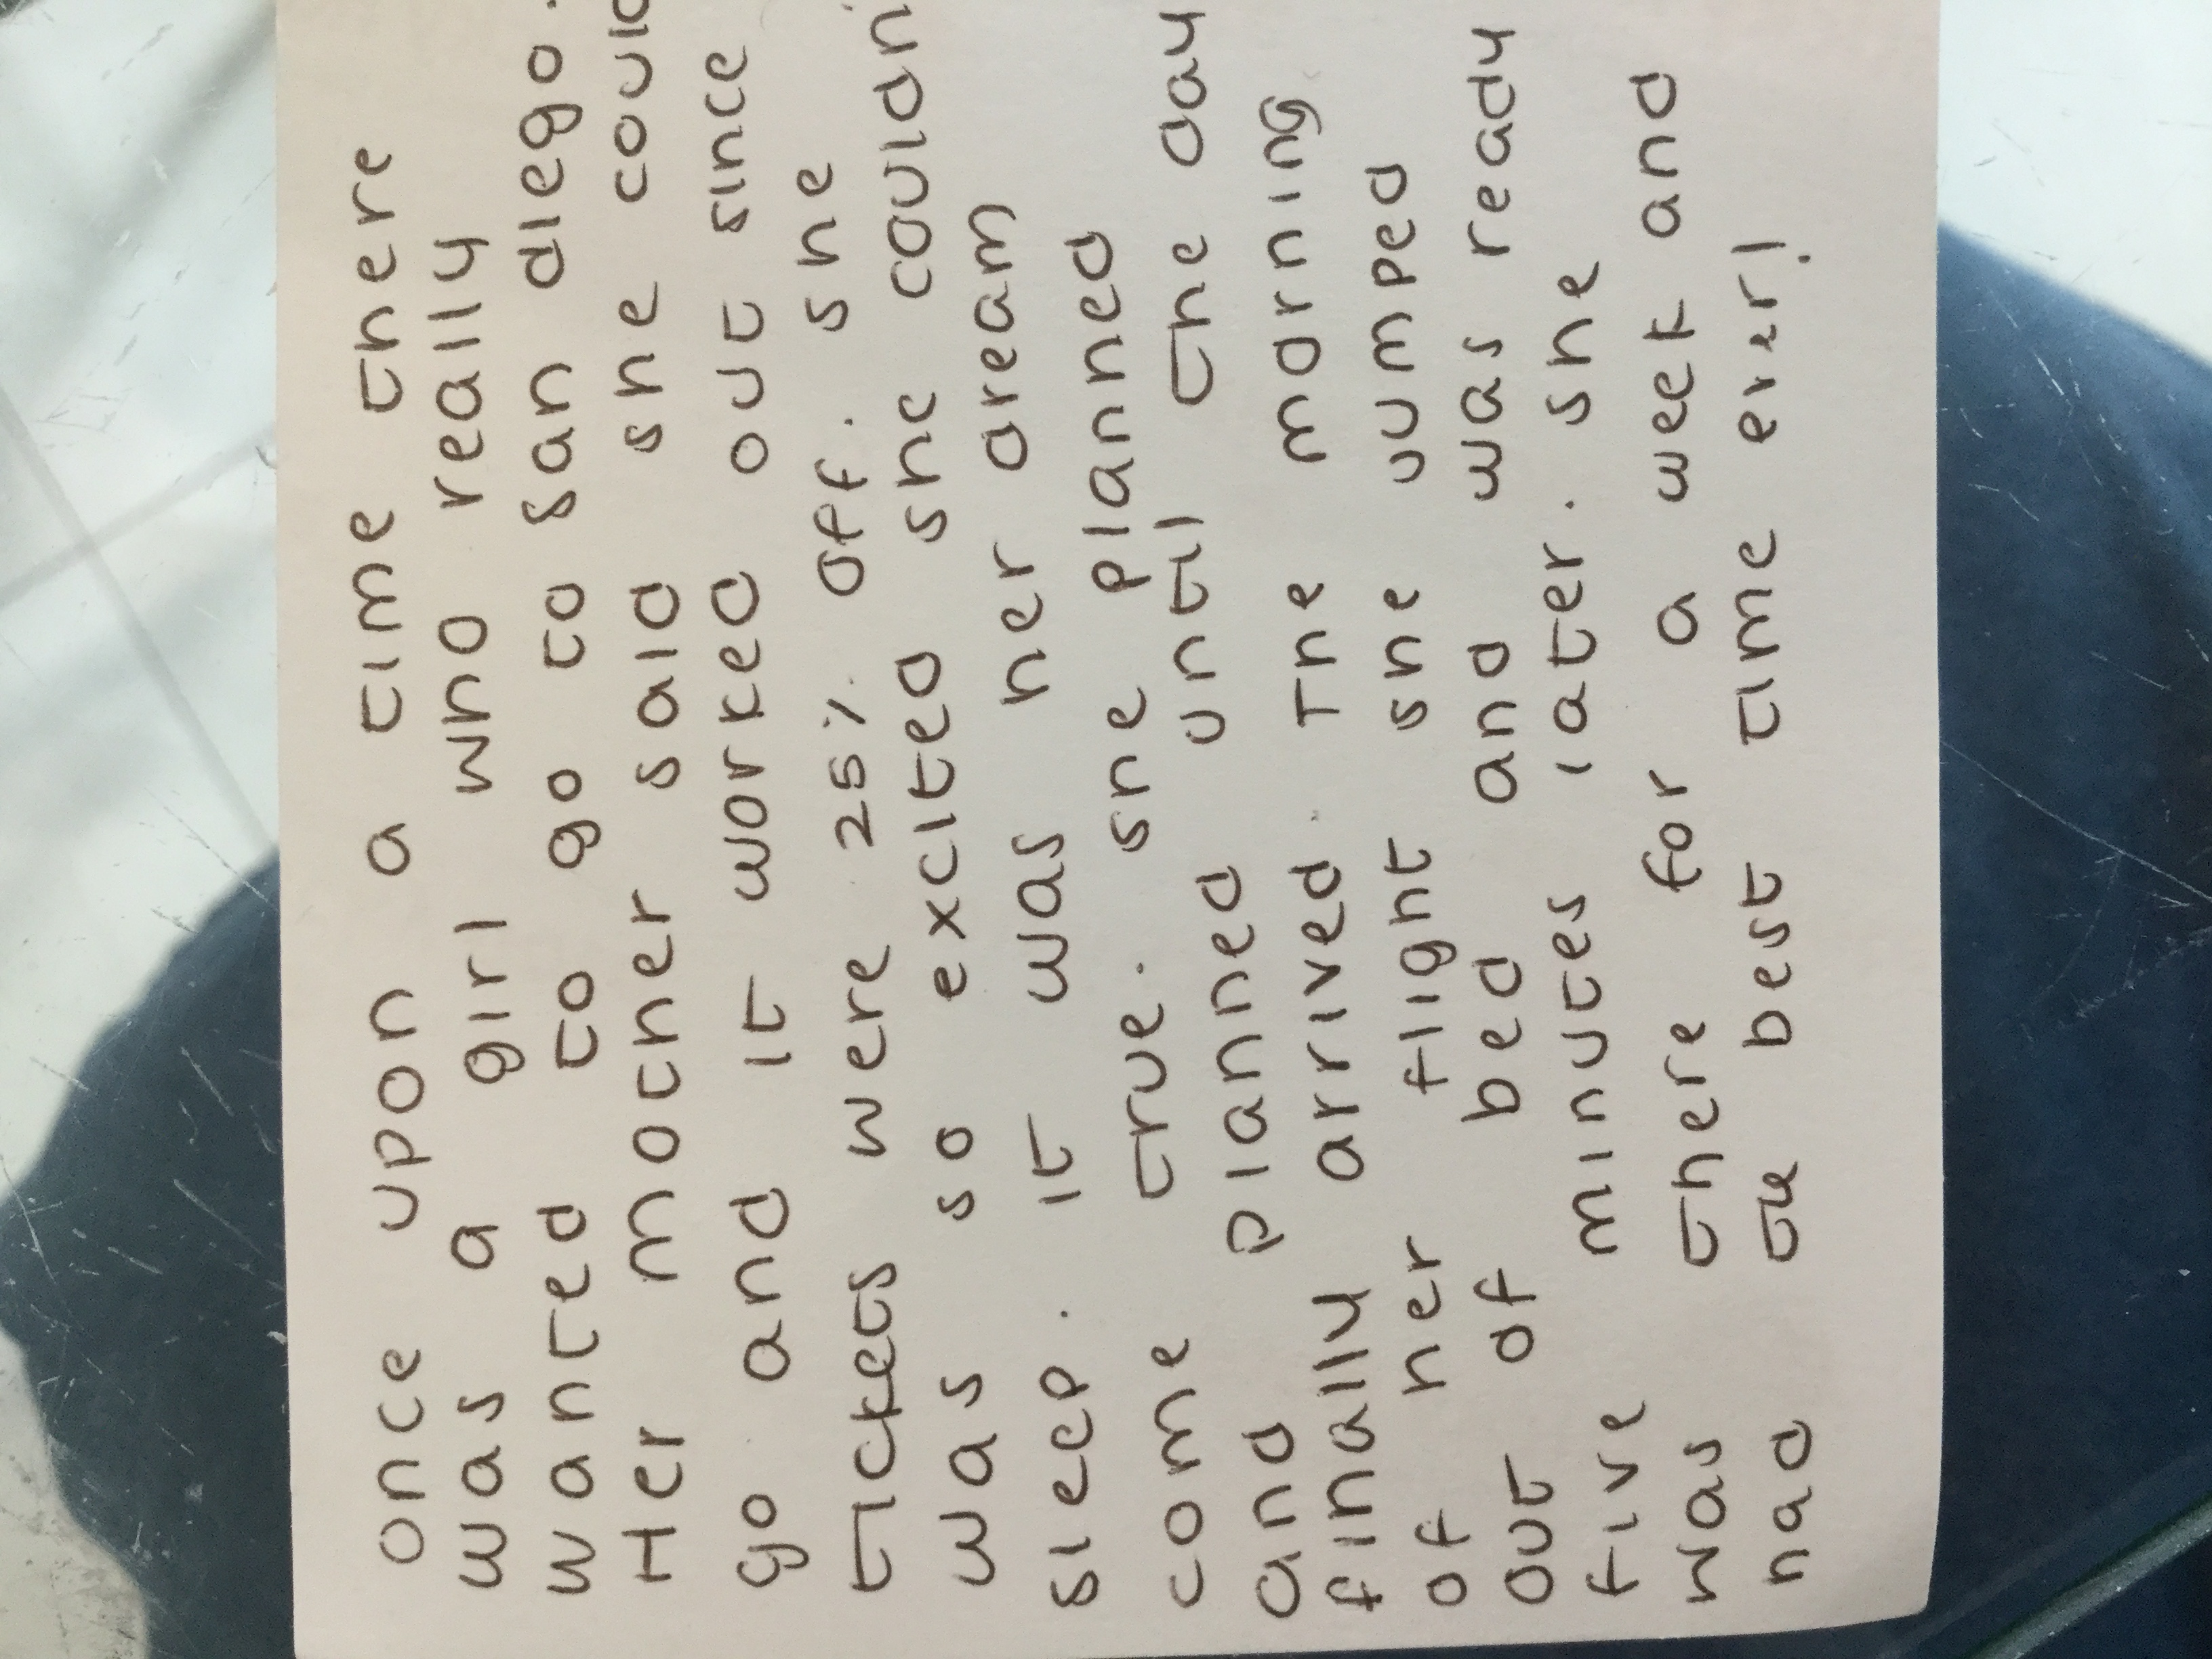 once upon a time there
was a girl who really
wanted to go to san diego.
Her mother said she could
go and it worked out since
tickets were 25% off. she
was so excited she couldn'
sleep. it was her dream
come true. she planned
and planned until the day
finally arrived. The morning
of her flight she jumped
out of bed and was ready
five minutes later. she
was there for a week and
had te best time ever!